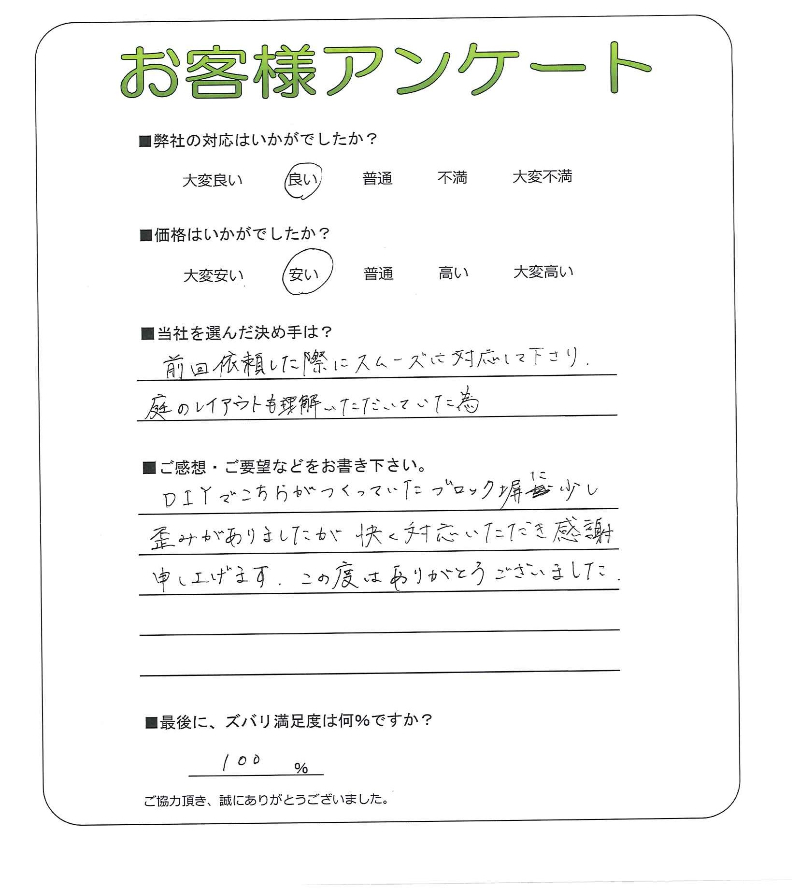 お客様アンケート
■弊社の対応はいかがでしたか？
大変良い 良い 普通 不満 大変不満
■価格はいかがでしたか？
大変安い 安い 普通 高い 大変高い
■当社を選んだ決め手は？
前回依頼した際にスムーズに対応して下さり、
庭のレイアウトも理解いただいていた為
■ご感想・ご要望などをお書き下さい。
DIYでこちらがつくっていたブロック塀に少し
歪みがありましたが 快く対応いただき感謝
申し上げます。この度はありがとうございました。
■最後に、ズバリ満足度は何%ですか？
100 %
ご協力頂き、誠にありがとうございました。